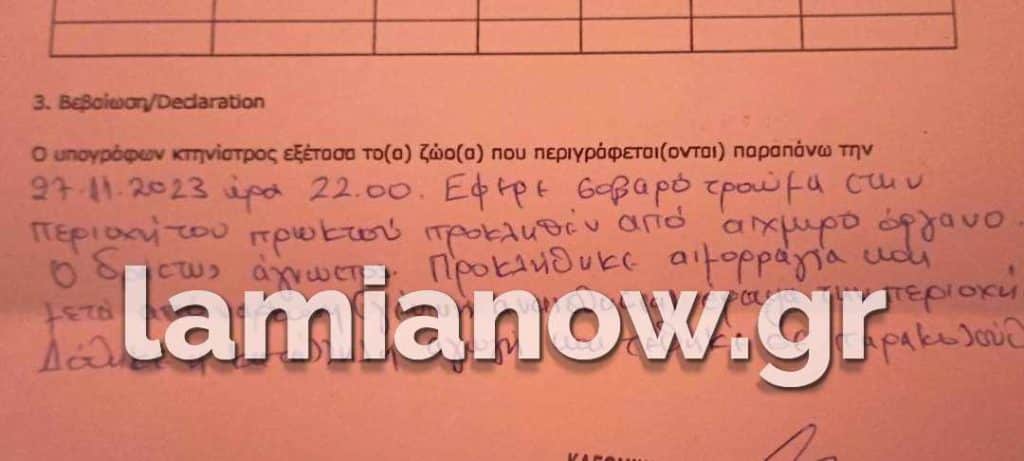 3. Βεβαίωση/Declaration
Ο υπογράφων κτηνίατρος εξέτασα το(α) ζώο(α) που περιγράφεται(ονται) παραπάνω την
27.11.2023 ώρα 22.00. Εφερε σοβαρό τραύμα στην
περιοχή του πρωκτού προκληθέν από αιχμηρό όργανο.
Ο δράστης άγνωστος. Προκλήθηκε αιμορραγία και
μετά περιοχή
lamianow.gr
Δόθηκε αγωγή και τέθηκε σε